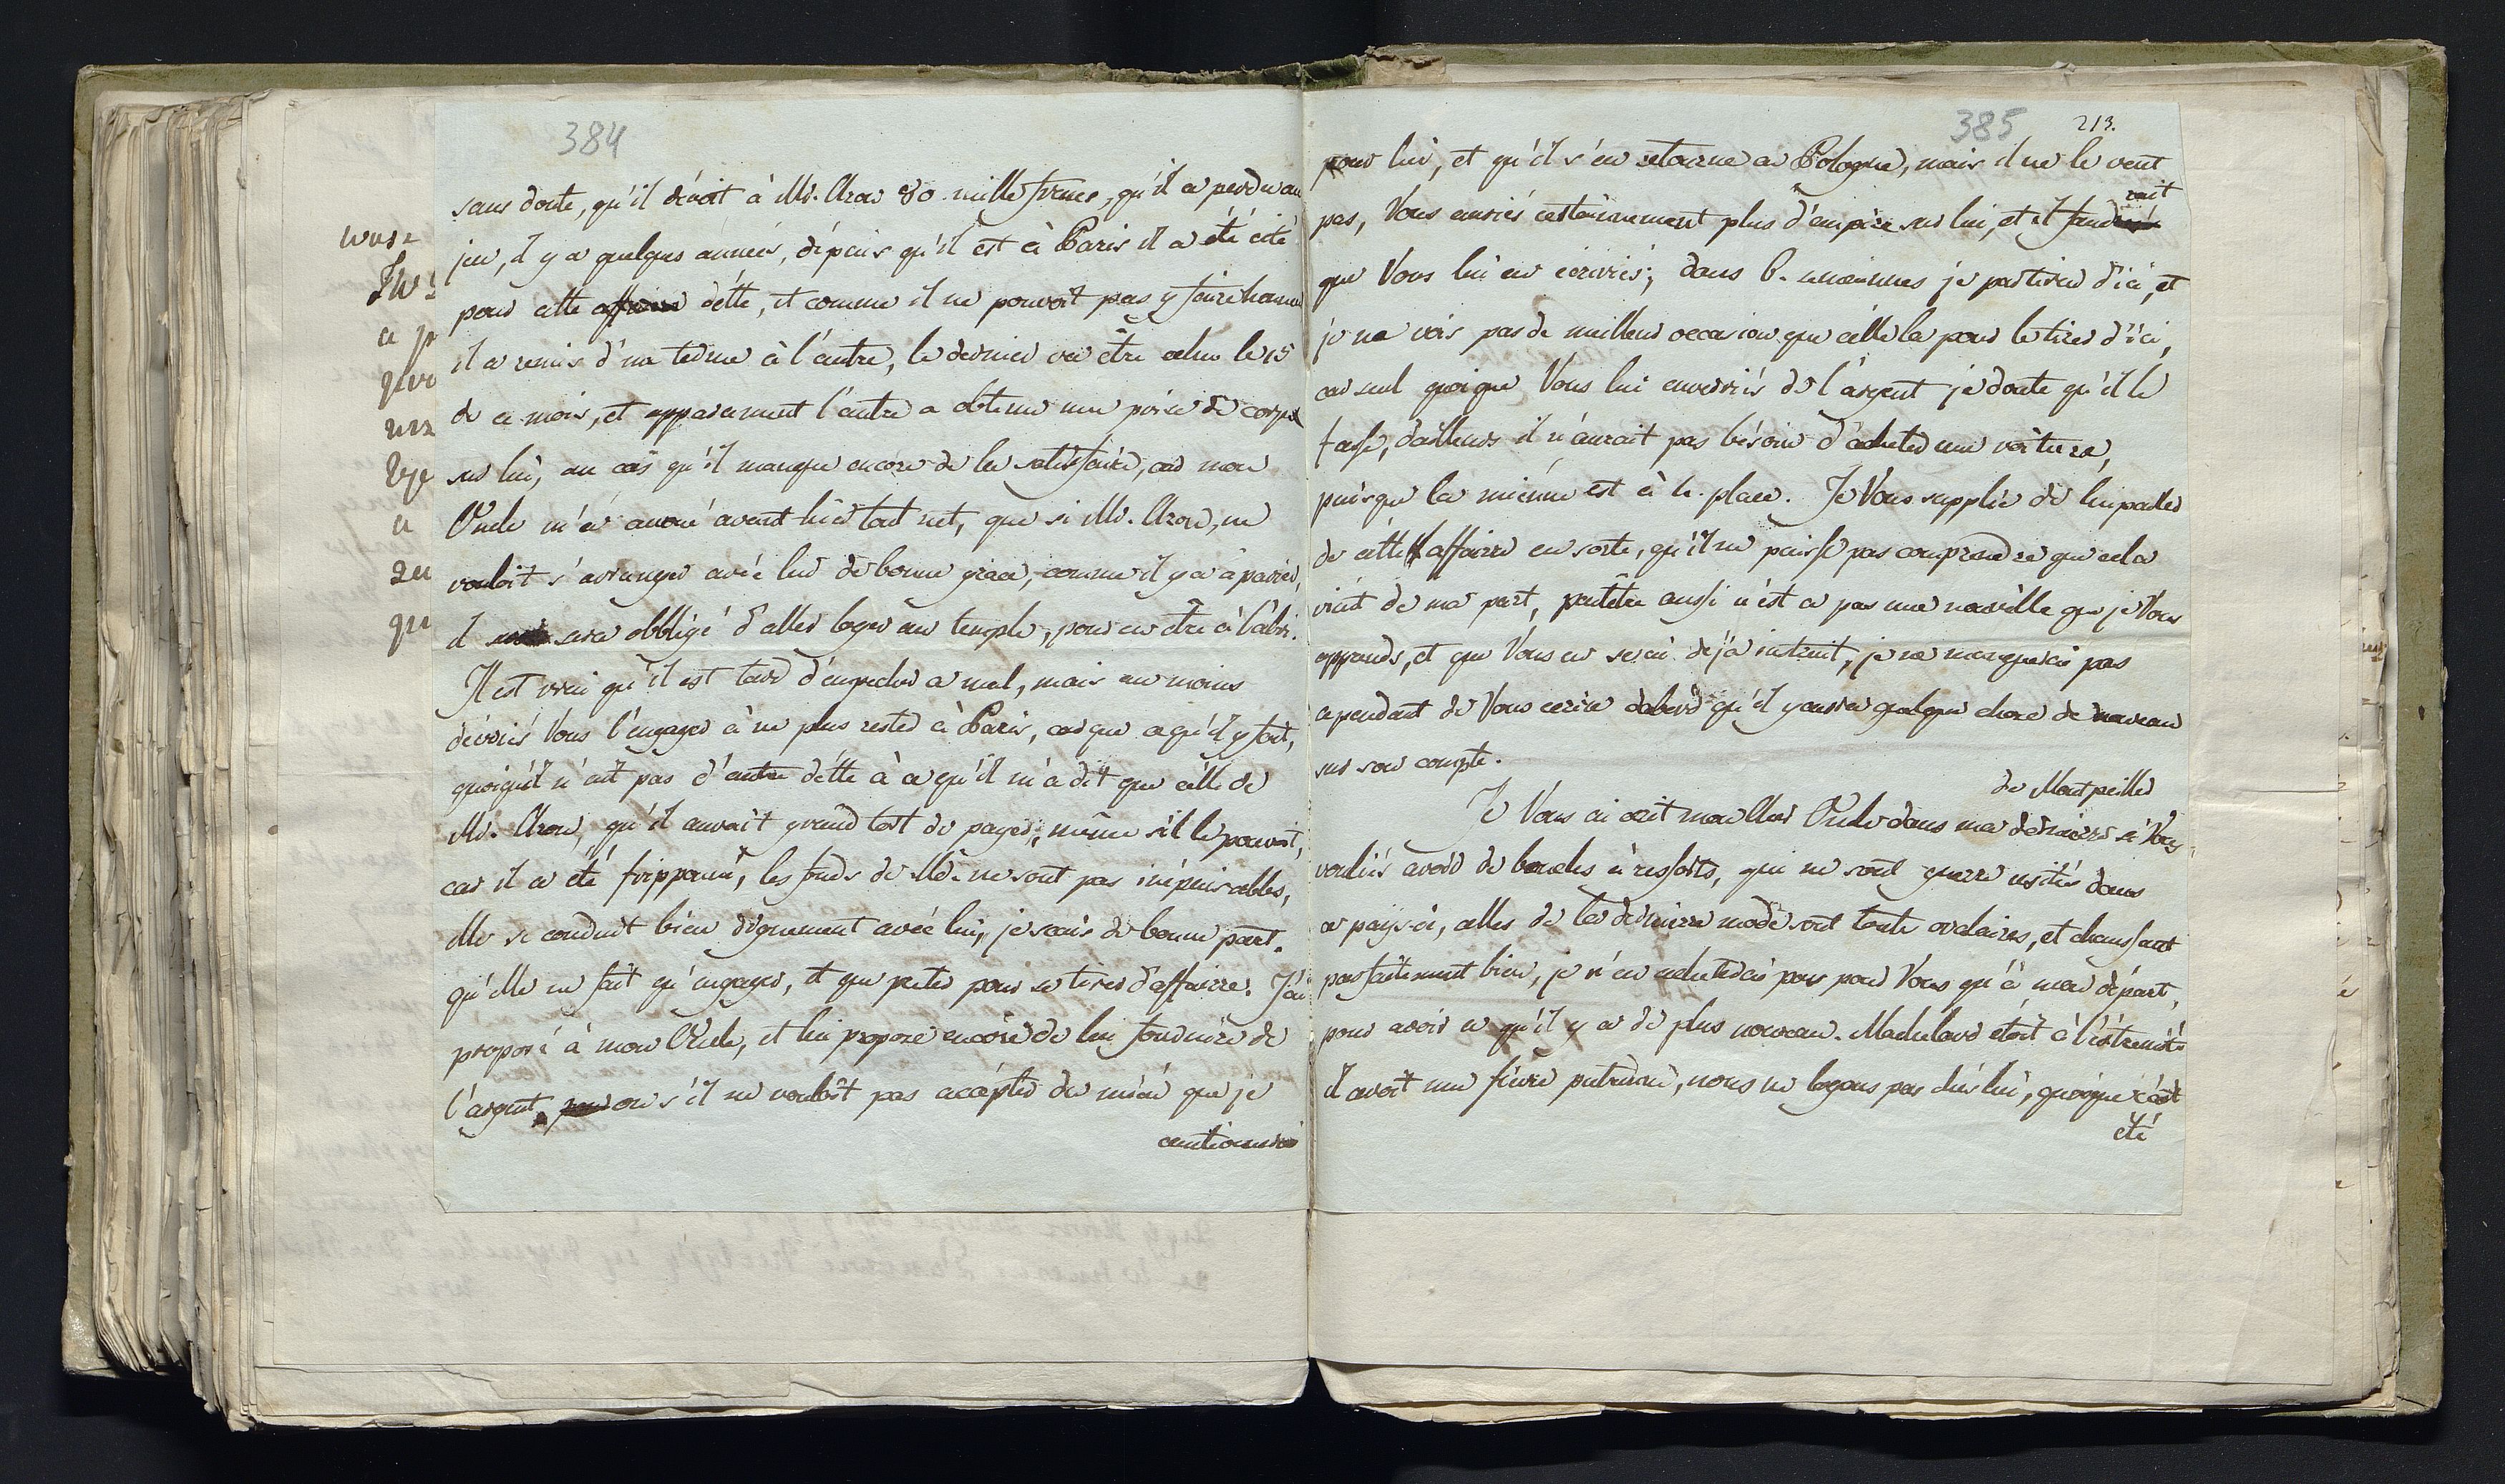 384
sans doute, qu'il devoit à Mr. Aron 80 mille francs, qu'il a perdu au
jeu, il y a quelques années, dépuis qu'il est à Paris il a été cité
pour cette affaire détte, et comme il ne pouvoit pas y faire honneur
il a remis d'un terme à l'autre, le dernier va être celui le 15
de ce mois, et apparement l'autre a obtenu une prise de corps
sur lui, au cas qu'il manque encore de le satisfaire, car mon
Oncle m'a avoué avant hier tout net, que si Mr. Aron, ne
vouloit s'arranger avéc lui de bonne grace, comme il y a à parier,
il sera obbligé d'aller loger au temple, pour en être à l'abri.
Il est vrai qu'il est tard d'empecher ce mal, mais au moins
dévriés Vous l'engager à ne plus rester à Paris, car que ce qu'il y fait,
quoiqu'il n'ait pas d'autre détte à ce qu'il m'a dit que célle de
Mr. Aron, qu'il auroit grand tort de payer, même s'il le pouvoit,
car il a été frippouné, les fonds de Md. ne sont pas inépuisables,
elle se conduit bien dignement avéc lui, je scais de bonne part
qu'elle ne fait qu'engager, et que préter pour se tirer d'affairre. J'ai
proposé à mon Oncle, et lui propose encore de lui fournire de
l'argent, ou s'il ne vouloit pas accépter du mien que je
cautionnerai
wusz
a
qu
385
213.
pour lui, et qu'il s'en retourne en Pologne, mais il ne le veut
pas, Vous auriés certainnement plus d'empire sur lui, et il faud
roit
que Vous lui en écriviés; dans 6. semainnes je partirai d'ici, et
je ne vois pas de meilleur occasion que célle la pour le tirer d'ici,
car seul quoique Vous lui enverriés de l'argent je doute qu'il le
fasse, dailleurs il n'auroit pas bésoin d'acheter une voiture,
puisque la miénne est à 4. place. Je Vous supplie de lui parler
de cétte affairre en sorte, qu'il ne puisse pas comprendre que cela
vint de ma part, peutêtre aussi n'est ce pas une nouvélle que je Vous
apprends, et que Vous en serai déja instruit, je ne manquerai pas
cependant de Vous ecrire dabord qu'il y aura quelque chose de nouveau
sur son compte.
de Montpeiller
Je Vous ai ecrit mon cher Oncle dans ma dérniere si Vous
vouliés avoir de boucles à ressorts, qui ne sont guerre usités dans
ce pays-ci, celles de la derniere mode sont toute ovalaires, et chaussent
parfaitement bien, je n'en acheterai pas pour Vous qu'à mon départ,
pour avoir ce qu'il y a de plus nouveau. étoit à l'éxtremité
il avoit une fiévre putride, nous ne logons pas chés lui, quoique c'ait
été